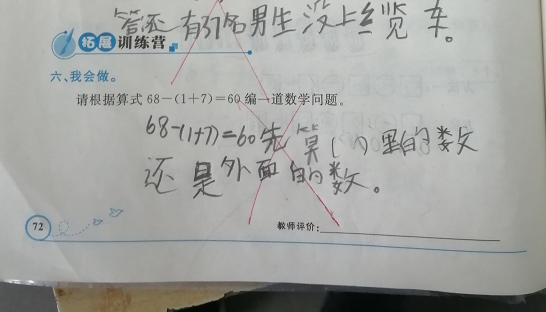 答还有37名男生没上缆车。
拓展训练营
六、我会做。
请根据算式68-(1+7)=60编一道数学问题。
68-(1+7)=60先算( )里的数文
还是外面的数文。
72
教师评价: